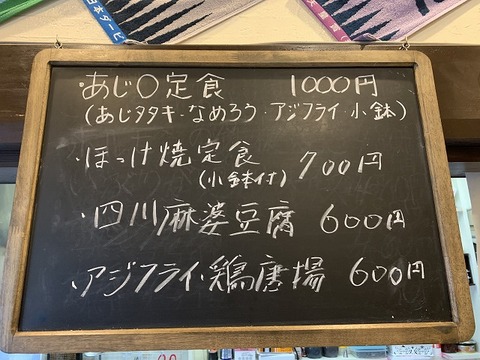 日本ダービ
・あじ〇定食 1000円
(あじタタキ・なめろう・アジフライ・小鉢)
・ほっけ焼定食 700円
(小鉢付)
・四川麻婆豆腐 600円
・アジフライ・鶏唐揚 600円